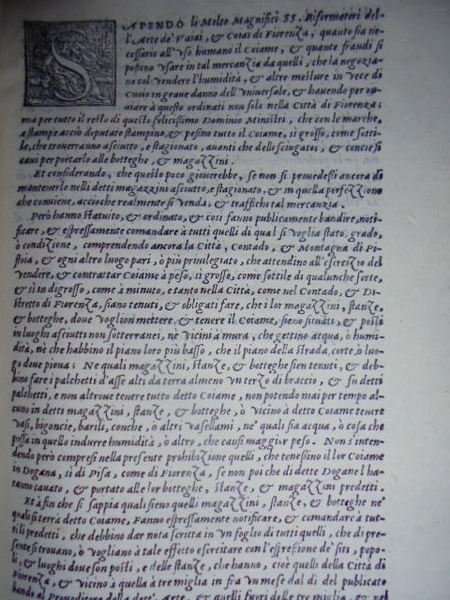 SAPENDO li Molto Magnifici SS. Riformatori del-
l'Arte de' Vaiai, & Coiai di Fiorenza, quanto sia ne-
cessario all'uso humano il Coiame, & quante fraudi si
possino usare in tal mercanzia da quelli, che la negozja-
no col vendere l'humidità, & altre mesture in vece di
Cuoio in graue danno dell'Vniuersale, & hauendo per ou-
uiare à questo ordinati non solo nella Città di Fiorenza;
ma per tutto il resto di questo felicissimo Dominio Ministri, che con le marche,
e stampe accio deputate stampino, & pesino tutto il Coiame, sì grosso, come sotti-
le, che troueranno asciutto, e stagionato, auanti che delli sciugatoi, & concie si
caui per portarlo alle botteghe, & magazzini.
Et considerando, che questo poco giouerebbe, se non si prouedessi ancora di
mantenerlo nelli detti magazzini asciutto, e stagionato, & in quella perfezzione
che conuiene, accioche realmente si venda, & traffichi tal mercanzia.
Però hanno statuito, & ordinato, & così fanno publicamente bandire, noti-
ficare, & espressamente comandare à tutti quelli di qual si voglia stato, grado,
ò condizione, comprendendo ancora la Città, Contado, & Montagna di Pi-
stoia, & ogni altro luogo pari, ò più priuilegiato, che attendino all'esercizio del
vendere, & contrattar Coiame à peso, sì grosso, come sottile di qualunche sorte,
& sì in di grosso, come à minuto, e tanto nella Città, come nel Contado, & Di-
stretto di Fiorenza, siano tenuti, & obligati fare, che i lor magazzini, stanze,
& botteghe, doue voglion mettere, & tenere il Coiame, sieno situati, & posti
in luoghi asciutti non sotterranei, nè vicini à mura, che gettino acqua, ò humi-
dità, nè che habbino il piano loro più basso, che il piano della strada, corte, ò luo-
go doue pioua; Ne quali magazzini, stanze, & botteghe sien tenuti, & deb-
bino fare i palchetti d'asse alti da terra almeno vn terzo di braccio, & su detti
palchetti, e non altroue tenere tutto detto Coiame, non potendo mai per tempo al-
tuno in detti magazzini, stanze, & botteghe, ò vicino à detto Coiame tenere
vasi, bigoncie, barili, conche, ò altri vasellami, ne' quali sia acqua, ò cosa che
possa in quello indurre humidità, ò altro, che causi maggior peso. Non s'inten-
dendo però compresi nella presente prohibizione quelli, che tenessino il lor Coiame
in Dogana, sì di Pisa, come di Fiorenza, se non poi che di dette Dogane l'ha-
ranno cauato, & portato alle lor botteghe, stanze, & magazzini predetti.
Et à fin che si sappia quali sieno quelli magazzini, stanze, & botteghe ne'
quali si terrà detto Coiame, Fanno espressamente notificare, & comandare à tut-
ti li predetti, che debbino dar nota scritta in vn foglio di tutti quelli, che di pre-
sente si trouano, ò vogliano à tale effetto esercitare con l'espresione de' siti, popo-
li, & luoghi doue son posti, e delle stanze, che hanno, cioè quelli della Città di
Fiorenza, & vicino à quella à tre miglia in fra vn mese dal dì del publicato
bando al Proueditore della dett' Arte, & quelli fuori delle tre miglia, & in